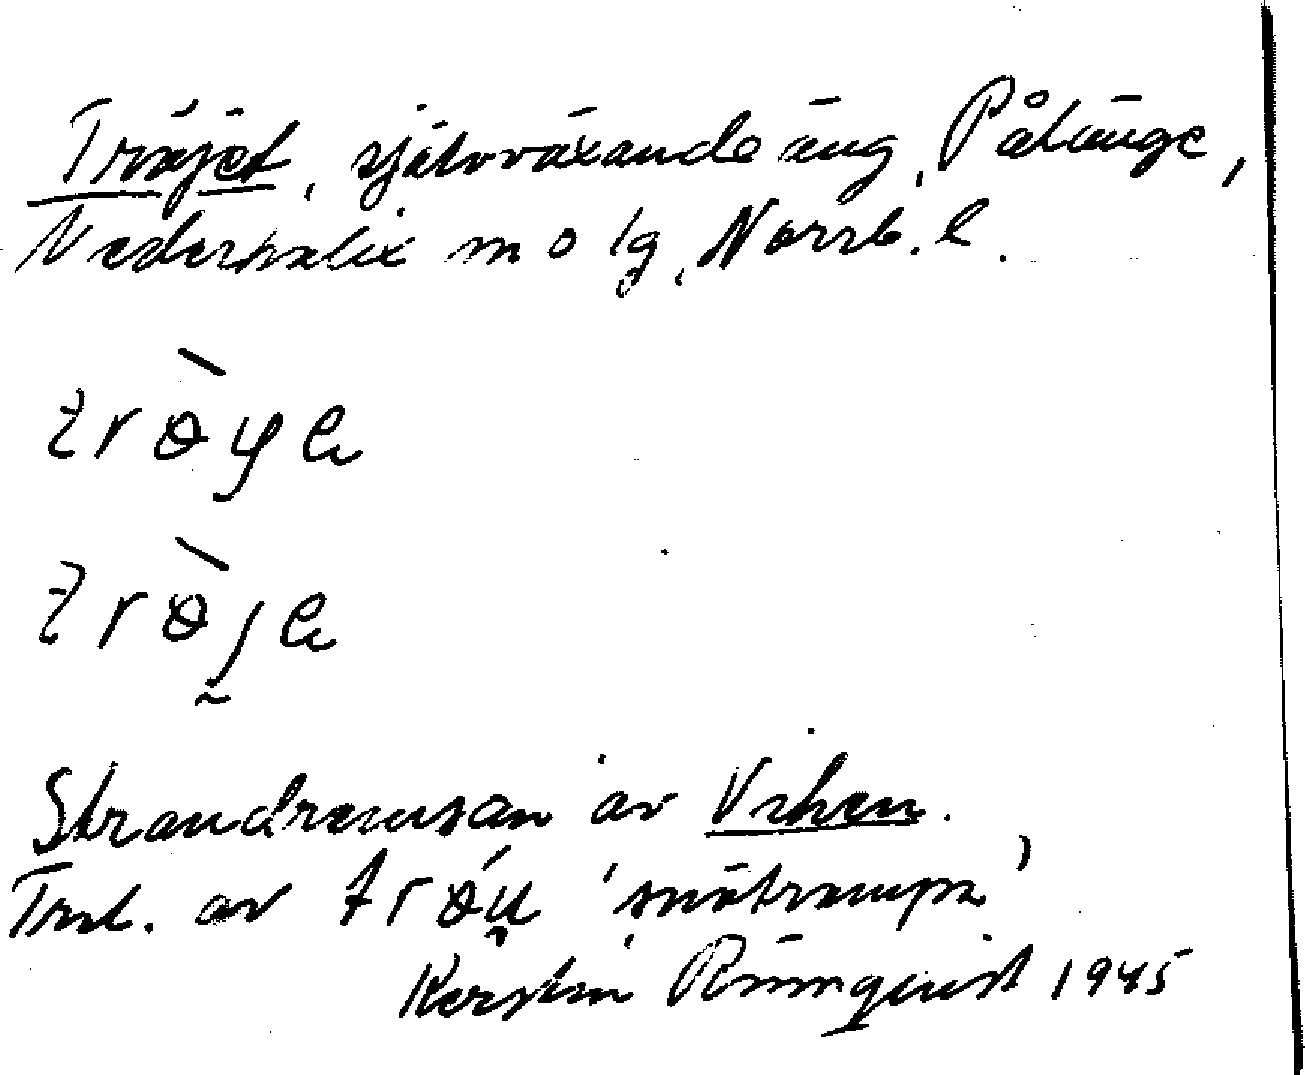 Tröjet, självväxande äng, Pålänge,
Nederkalix m o lg, Norrb. l.
Strandremsan av Viken.
Trol. av 'snötrampa'
Kerstin Rönnquist 1945